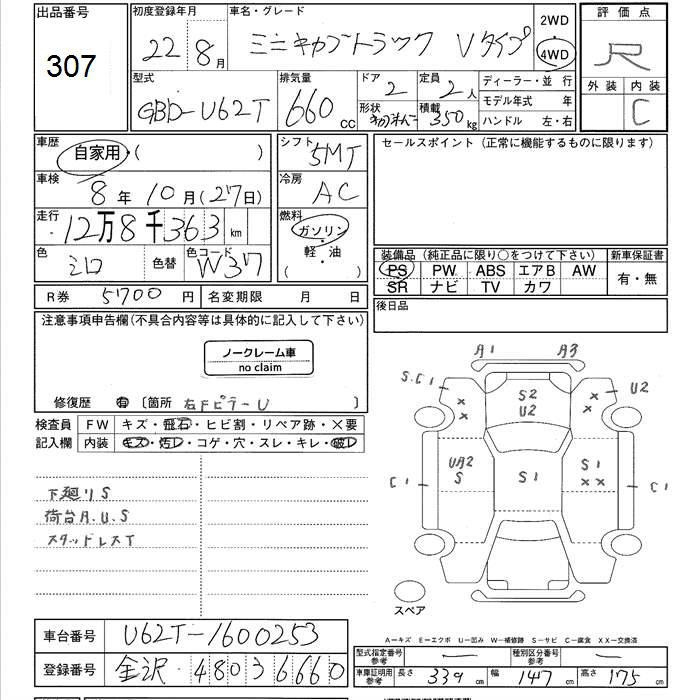 出品番号
307
初度登録年月
22年 8月
車名・グレード
ミニキャブトラック Vタイプ
2WD
4WD
評価点
R
外装 内装
C
型式
GBD-U62T
排気量
660 CC
ドア
2
定員
2人
形状
積載
350 kg
ディーラー・並行
モデル年式 年
ハンドル 左・右
車歴
自家用・( )
車検
8年 10月(27日)
走行
12万8千363 km
色
シロ
色替
色コード
W37
シフト
5MT
冷房
AC
燃料
ガソリン
軽・油
( )
セールスポイント (正常に機能するものに限ります)
装備品 (純正品に限り○をつけて下さい)
新車保証書
PS PW ABS エアB AW
SR ナビ TV カワ
有・無
R券 5700 円
名変期限 月 日
後日品
注意事項申告欄(不具合内容等は具体的に記入して下さい)
ノークレーム車
no claim
修復歴 有 〔箇所 右Fピラー U 〕
検査員
記入欄
FW キズ・飛石・ヒビ割・リペア跡・×要
内装 キズ・汚レ・コゲ・穴・スレ・キレ・破レ
下廻りS
荷台A.U.S
スタッドレスT
A1 A3
S.C1
U2
S2
U2
× ×
× ×
C1
UA2
S
S1
S1
××
C1
スペア
A―キズ E―エクボ U―凹み W―補修跡 S―サビ C―腐食 XX―交換済
車台番号
U62T-1600253
登録番号
金沢・480 36660
型式指定番号
参考
―
種別区分番号
参考
―
車庫証明用
参考
長さ 339 cm
幅 147 cm
高さ 175 cm